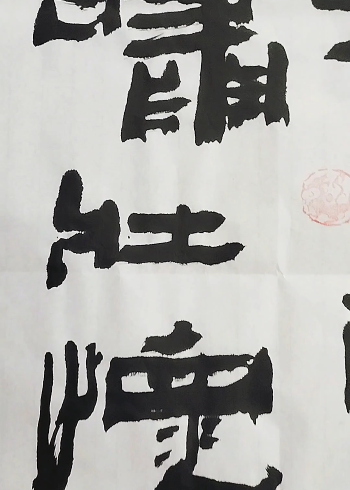 嘯壯懷